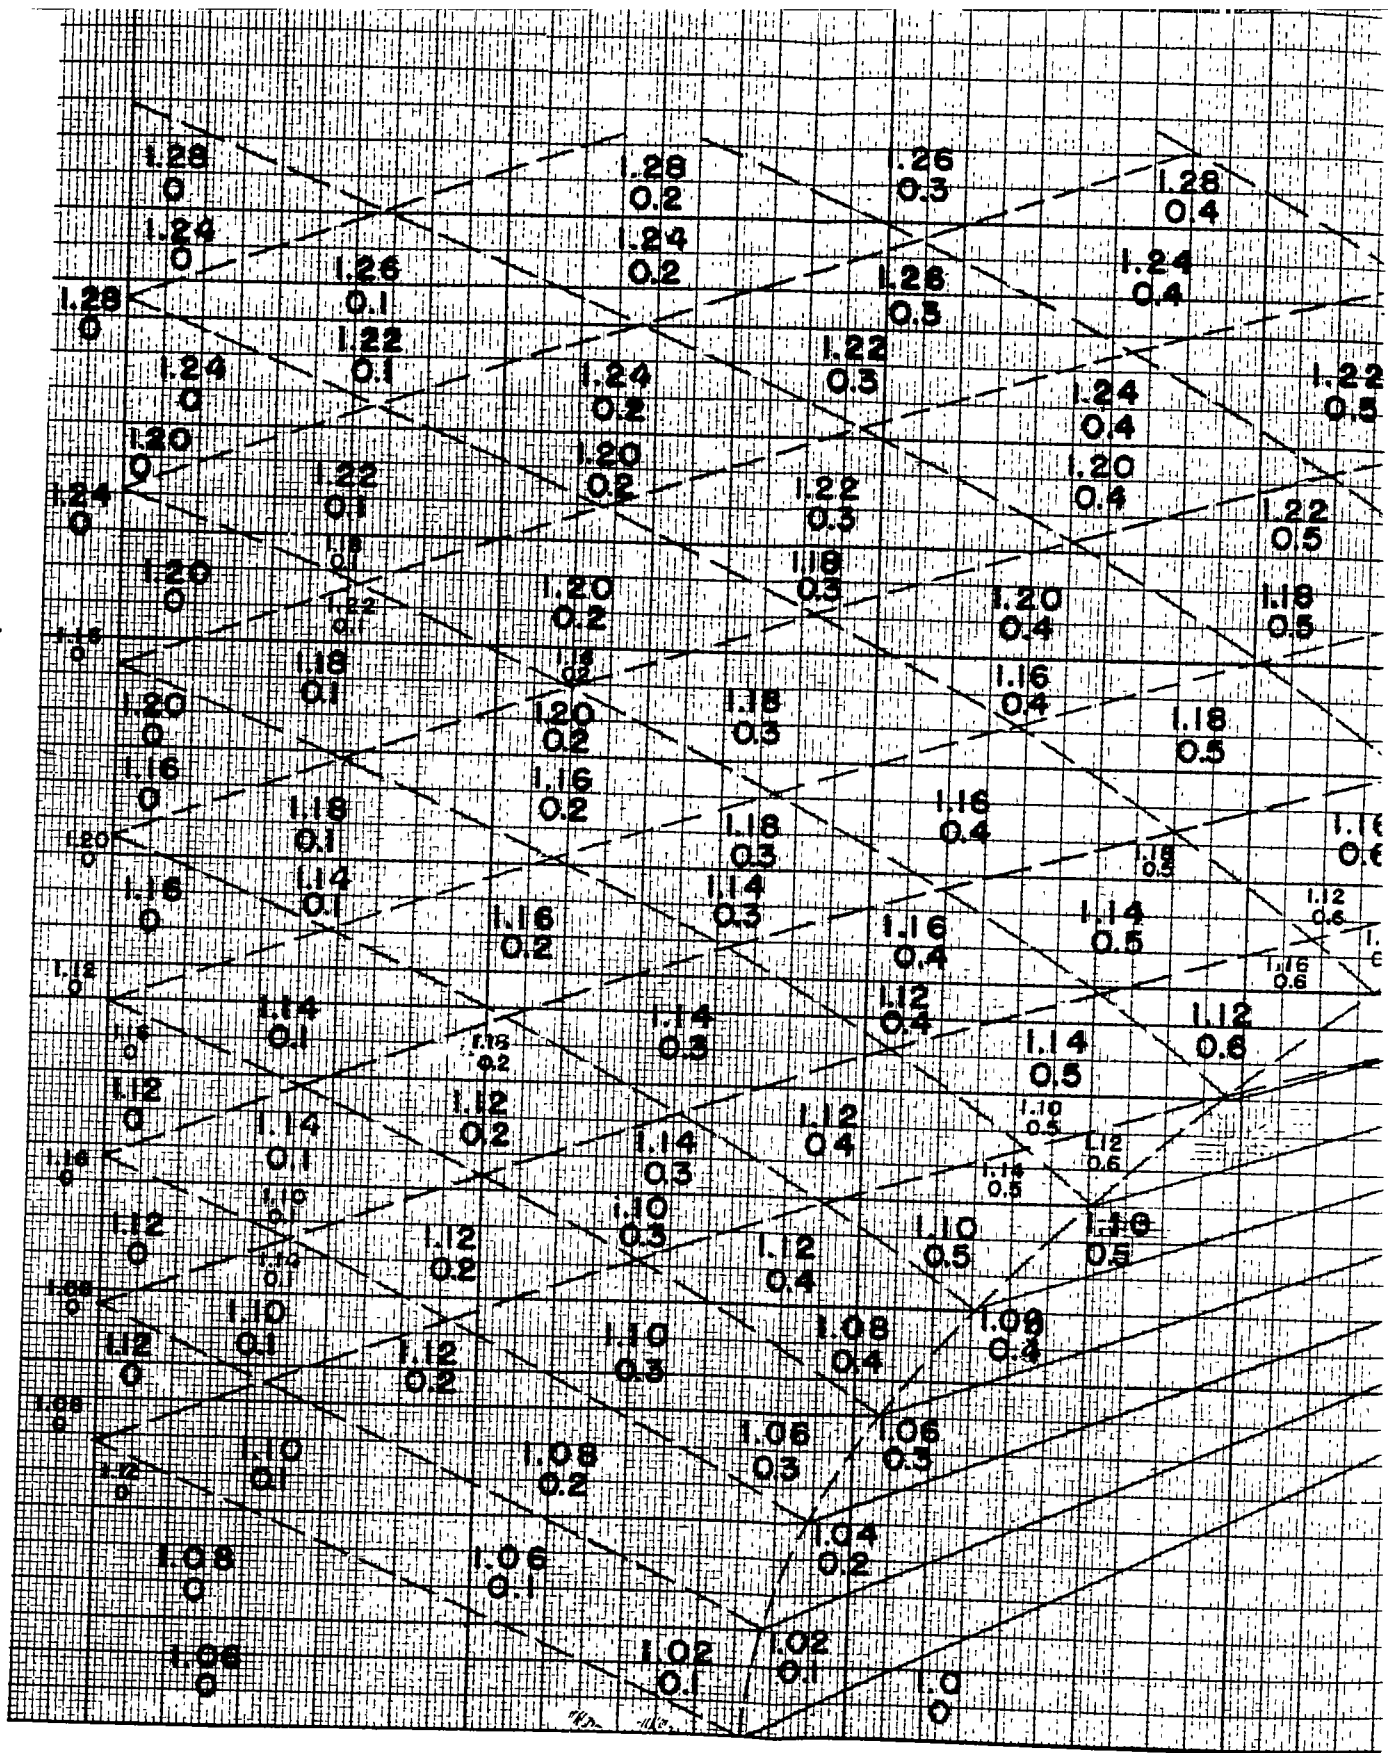 1.28
0
1.28
0.2
1.26
0.3
1.28
0.4
1.24
0
1.24
0.2
1.24
0.4
1.26
0.1
1.26
0.3
1.28
0
1.22
0.1
1.22
0.3
1.24
0
1.24
0.2
1.24
0.4
1.22
0.5
1.20
0
1.20
0.2
1.20
0.4
1.24
0
1.22
0.1
1.22
0.3
1.22
0.5
1.18
0.1
1.18
0.3
1.20
0
1.20
0.2
1.20
0.4
1.18
0.5
1.22
0.1
1.16
0
1.18
0.1
0.2
1.16
0.4
1.20
0
1.20
0.2
1.18
0.3
1.18
0.5
1.16
0
1.16
0.2
1.16
0.4
1.18
0.1
1.18
0.3
1.16
0.6
1.20
0
1.18
0.5
1.16
0
1.14
0.1
1.14
0.3
1.12
0.6
1.16
0.2
1.16
0.4
1.14
0.5
1.12
0
1.16
0.6
1.14
0.1
1.14
0.3
1.12
0.4
1.12
0.6
1.16
0
1.16
0.2
1.14
0.5
1.12
0
1.12
0.2
1.12
0.4
1.10
0.5
1.14
0.1
1.14
0.3
1.12
0.6
1.16
0
1.14
0.5
1.10
0.1
1.10
0.3
1.12
0
1.12
0.2
1.12
0.4
1.10
0.5
1.10
0.5
1.10
0.1
1.08
0
1.10
0.1
1.10
0.3
1.08
0.4
1.08
0.4
1.12
0
1.12
0.2
1.08
0
1.10
0.1
1.08
0.2
1.06
0.3
1.06
0.3
1.12
0
1.08
0
1.06
0.1
1.04
0.2
1.06
0
1.02
0.1
1.02
0.1
1.0
0